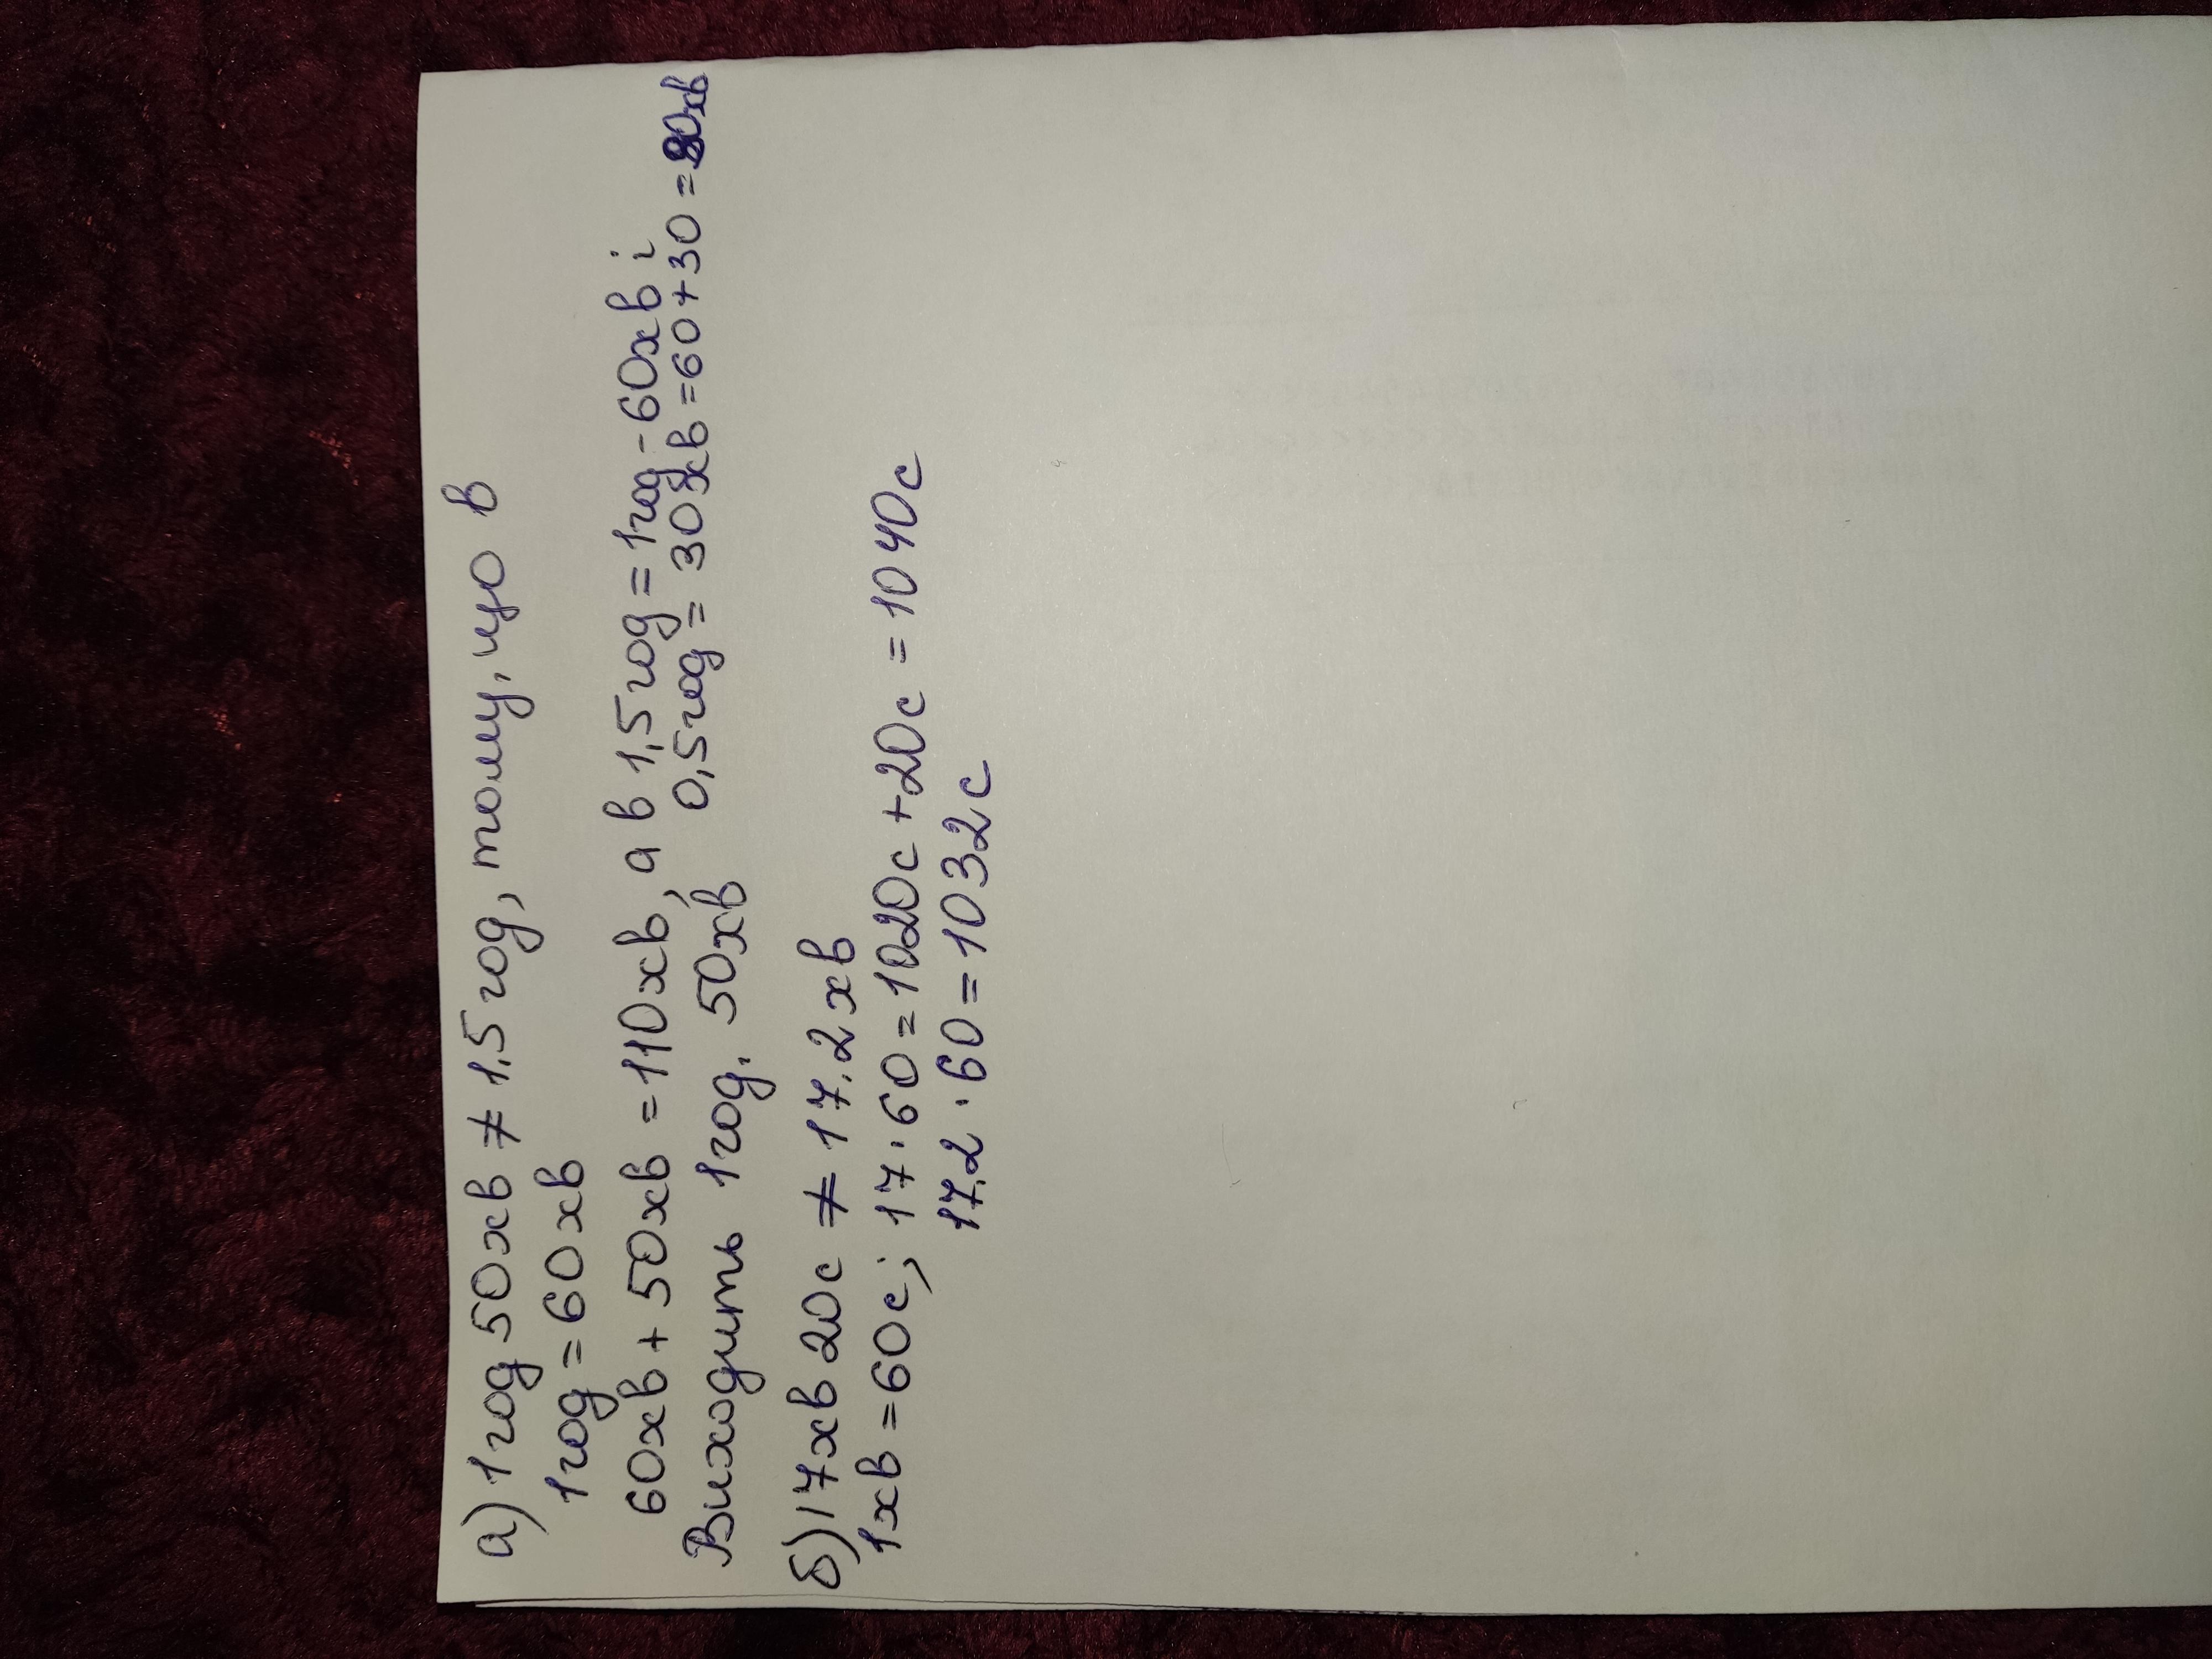 а) 1год 50хв ≠ 1,5 год, тому, що в
1год = 60хв
60хв + 50хв = 110хв, а в 1,5год = 1год - 60хв і
0,5год = 30хв = 60+30 = 90хв
Виходить 1год. 50хв
б) 17хв 20с ≠ 17,2хв
1хв = 60с; 17·60 = 1020с + 20с = 1040с
17,2·60 = 1032с